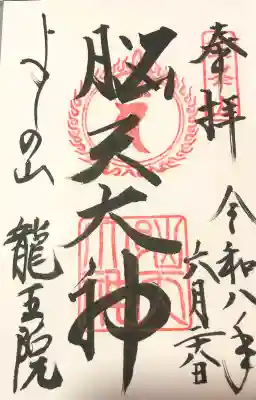 奉拝
令和八年
六月六日
脳天大神
よしの山
龍王院